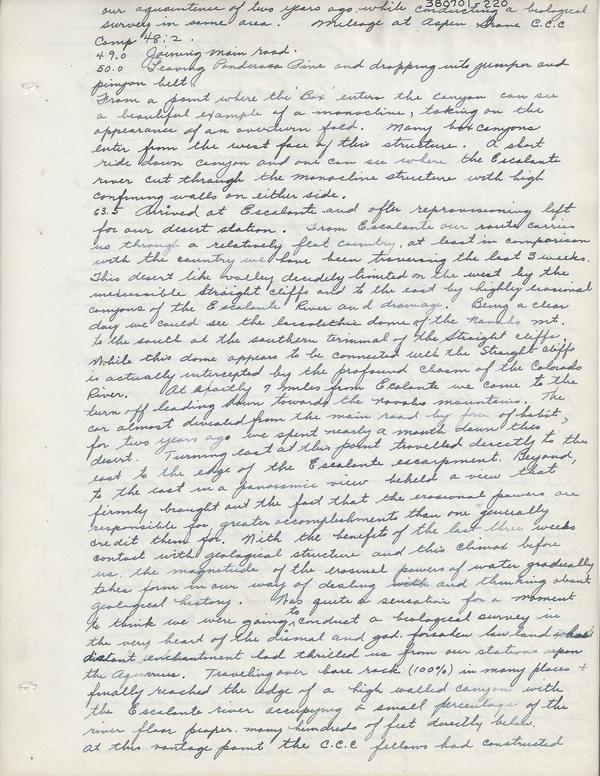 38070 5 220
our aquaintence of two years ago while conducting a biological
survey in same area. Mileage at Aspen Grove C.C.C
Camp 48.2.
49.0 Joining main road.
50.0 Leaving Ponderosa Pine and dropping into juniper and
pinyon belt.
From a point where the 'Box' enters the canyon can see
a beautiful example of a monocline, taking on the
appearance of an overturn fold. Many box canyons
enter from the west face of this structure. A short
ride down canyon and one can see where the Escalante
river cut through the monocline structure with high
confining walls on either side.
63.5 Arrived at Escalante and after reprovisioning left
for our desert station. From Escalante our route carries
us through a relatively flat country, at least in comparison
with the country we have been traversing the last 3 weeks.
This desert like valley decidely limited on the west by the
inaccessible Straight cliffs and to the east by highly erosional
canyons of the Escalante River and drainage. Being a clear
day we could see the laccolethic dome of the Navaho Mt.
to the south at the southern terminal of the Straight cliffs.
While this dome appears to be connected with the Straight cliffs
is actually intercepted by the profound chasm of the Colorado
River. At exactly 7 miles from Escalante we come to the
turn off leading down towards the Navaho mountains. The
car almost diveated from the main road by force of habit,
for two years ago we spent nearly a month down this
desert. Turning east at this point travelled directly to the
east to the edge of the Escalante escarpment. Beyond,
to the east in a panoramic view beheld a view that
firmly brought out the fact that the erosional powers are
responsible for greater accomplishments than one generally
credit them for. With the benefits of the last three weeks
contact with geological structure and this climax before
us. the magnetude of the erosinal powers of water gradually
takes form in our way of dealing with and thinking about
geological history. Was quite a sensation for a moment
to think we were going to conduct a biological survey in
the very heard of the dismal and god. forsaken law land whose
distant enchantment had thrilled us from our stations upon
the Aquarius. Traveling over bare rock (100%) in many places +
finally reached the edge of a high walled canyon with
the Escalante river occupying a small percentage of the
river floor proper. many hundreds of feet directly below.
At this vantage point the C.C.C fellows had constructed